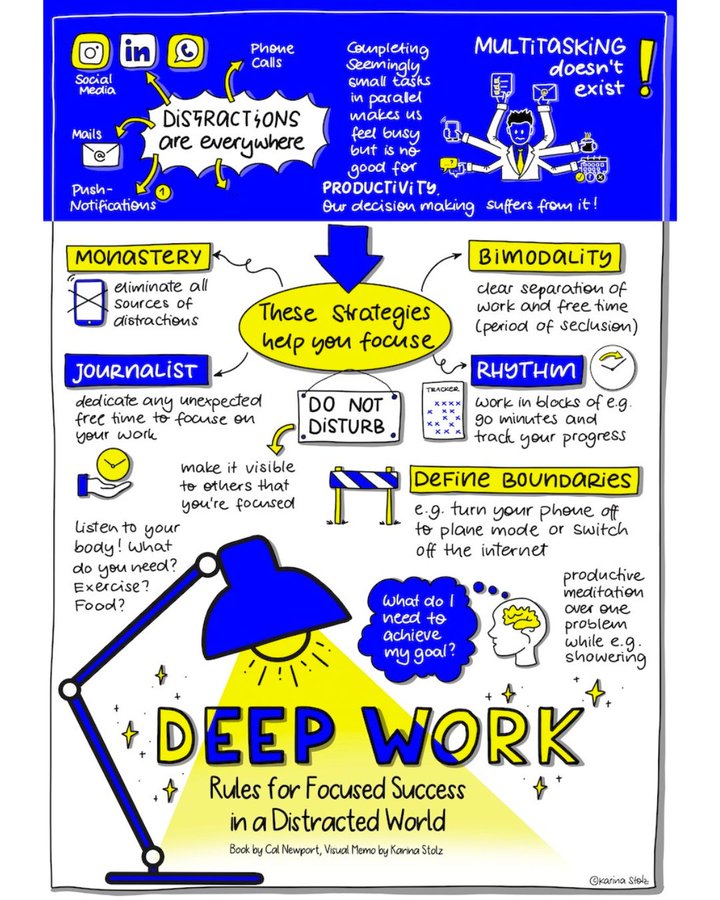 Social
Media
in
Phone
Calls
DISTRACTIONS
are everywhere
Mails
@
Push-
Notifications
1
Completing
Seemingly
small tasks
in parallel
makes us
feel busy
but is no
good for
PRODUCTIVITY.
Our decision making suffers from it!
MULTITASKING
doesn't
exist
!
These Strategies
help you focuse
MONASTERY
eliminate all
sources of
distractions
BIMODALITY
clear separation of
work and free time
(period of seclusion)
JOURNALIST
dedicate any unexpected
free time to focuse on
your work
RHYTHM
TRACKER
work in blocks of e.g.
90 minutes and
track your progress
DO NOT
DISTURB
make it visible
to others that
you're focused
DEFINE BOUNDARIES
e.g. turn your phone off
to plane mode or switch
off the internet
Listen to your
body! What
do you need?
Exercise?
Food?
What do I
need to
achieve
my goal?
productive
meditation
over one
problem
while e.g.
showering
DEEP WORK
Rules for Focused Success
in a Distracted World
Book by Cal Newport, Visual Memo by Karina Stolz
©Karina Stolz